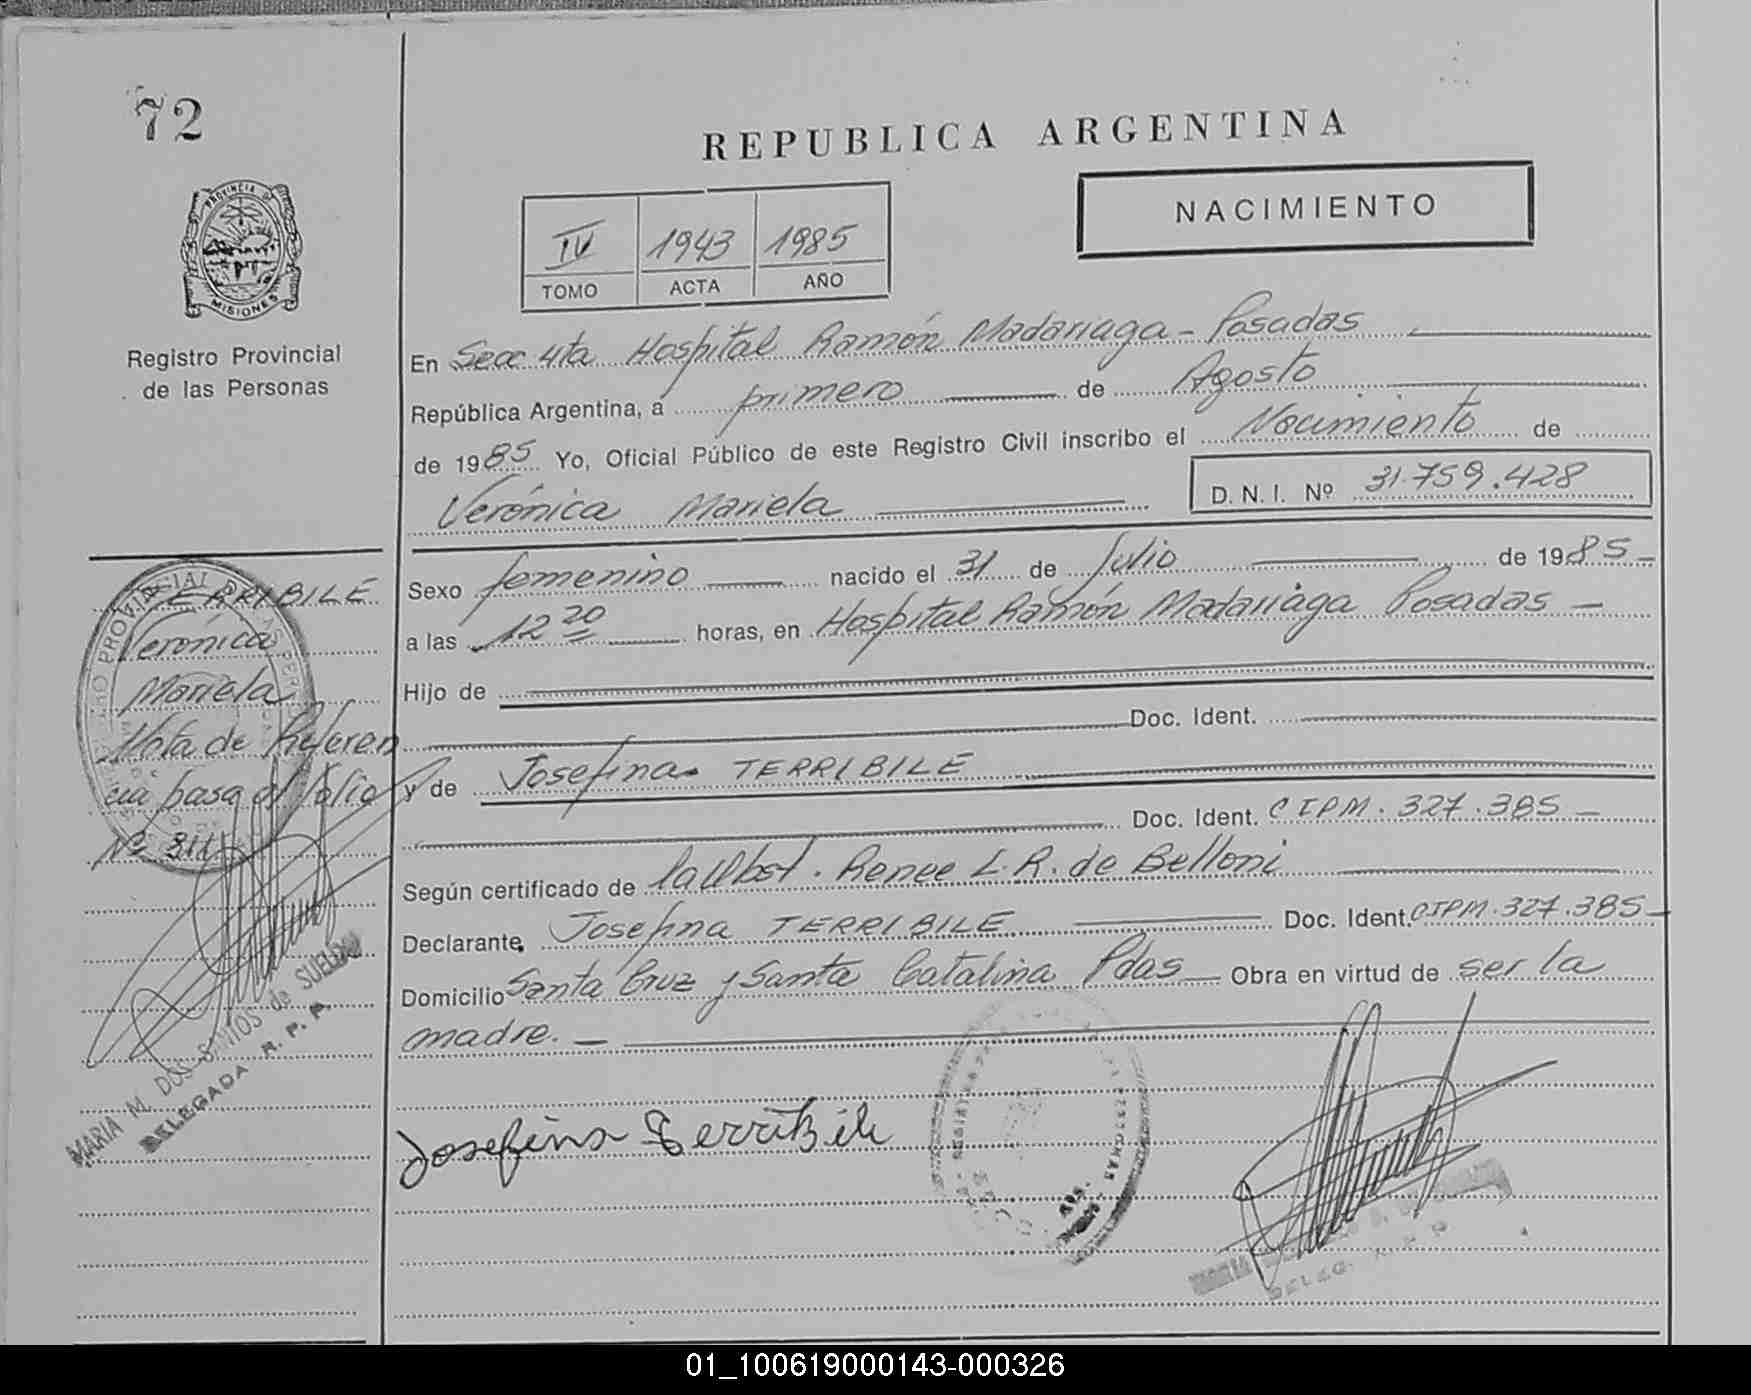 72
REPUBLICA ARGENTINA
NACIMIENTO
IV 1943 1985
TOMO ACTA AÑO
PROVINCIA DE
MISIONES
Registro Provincial
de las Personas
En Secc 4ta Hospital Ramón Madariaga - Posadas
República Argentina, a primero de Agosto
de 1985 Yo, Oficial Público de este Registro Civil inscribo el Nacimiento de
Verónica Mariela D. N. I. Nº 31.759.428
Sexo femenino nacido el 31 de Julio de 1985
a las 12 20 horas, en Hospital Ramón Madariaga Posadas
Hijo de
Doc. Ident.
y de Josefina TERRIBILE
Doc. Ident. CIPM. 327.385
Según certificado de la Obst. Renee L. R. de Belloni
Declarante Josefina TERRIBILE Doc. Ident. CIPM. 327.385
Domicilio Santa Cruz y Santa Catalina Pdas Obra en virtud de ser la
madre.
Josefina Terribile
TERRIBILE
Verónica
Mariela
Nota de Referen
cia pasa al folio
Nº 311
MARIA M. DOS SANTOS de SUELDO
DELEGADA R. P. P.
01_100619000143-000326